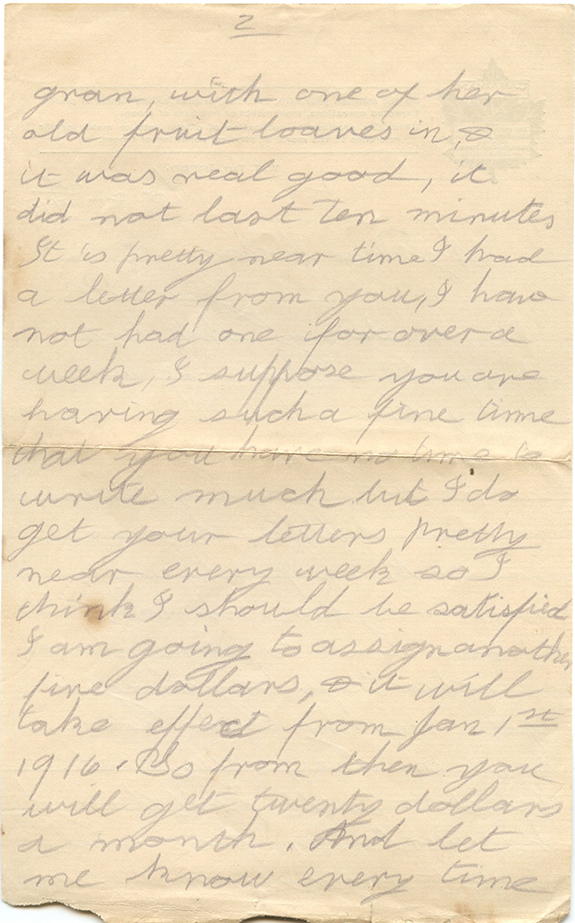 2
gran, with one of her
old fruit loaves in, &
it was real good, it
did not last Ten minutes
It is pretty near time I had
a letter from you, I have
not had one for over a
week, I suppose you are
having such a fine time
that you have no time to
write much but I do
get your letters pretty
near every week so I
think I should be satisfied
I am going to assign another
five dollars, & it will
take effect from Jan 1st
1916. So from then you
will get twenty dollars
a month. And let
me know every time